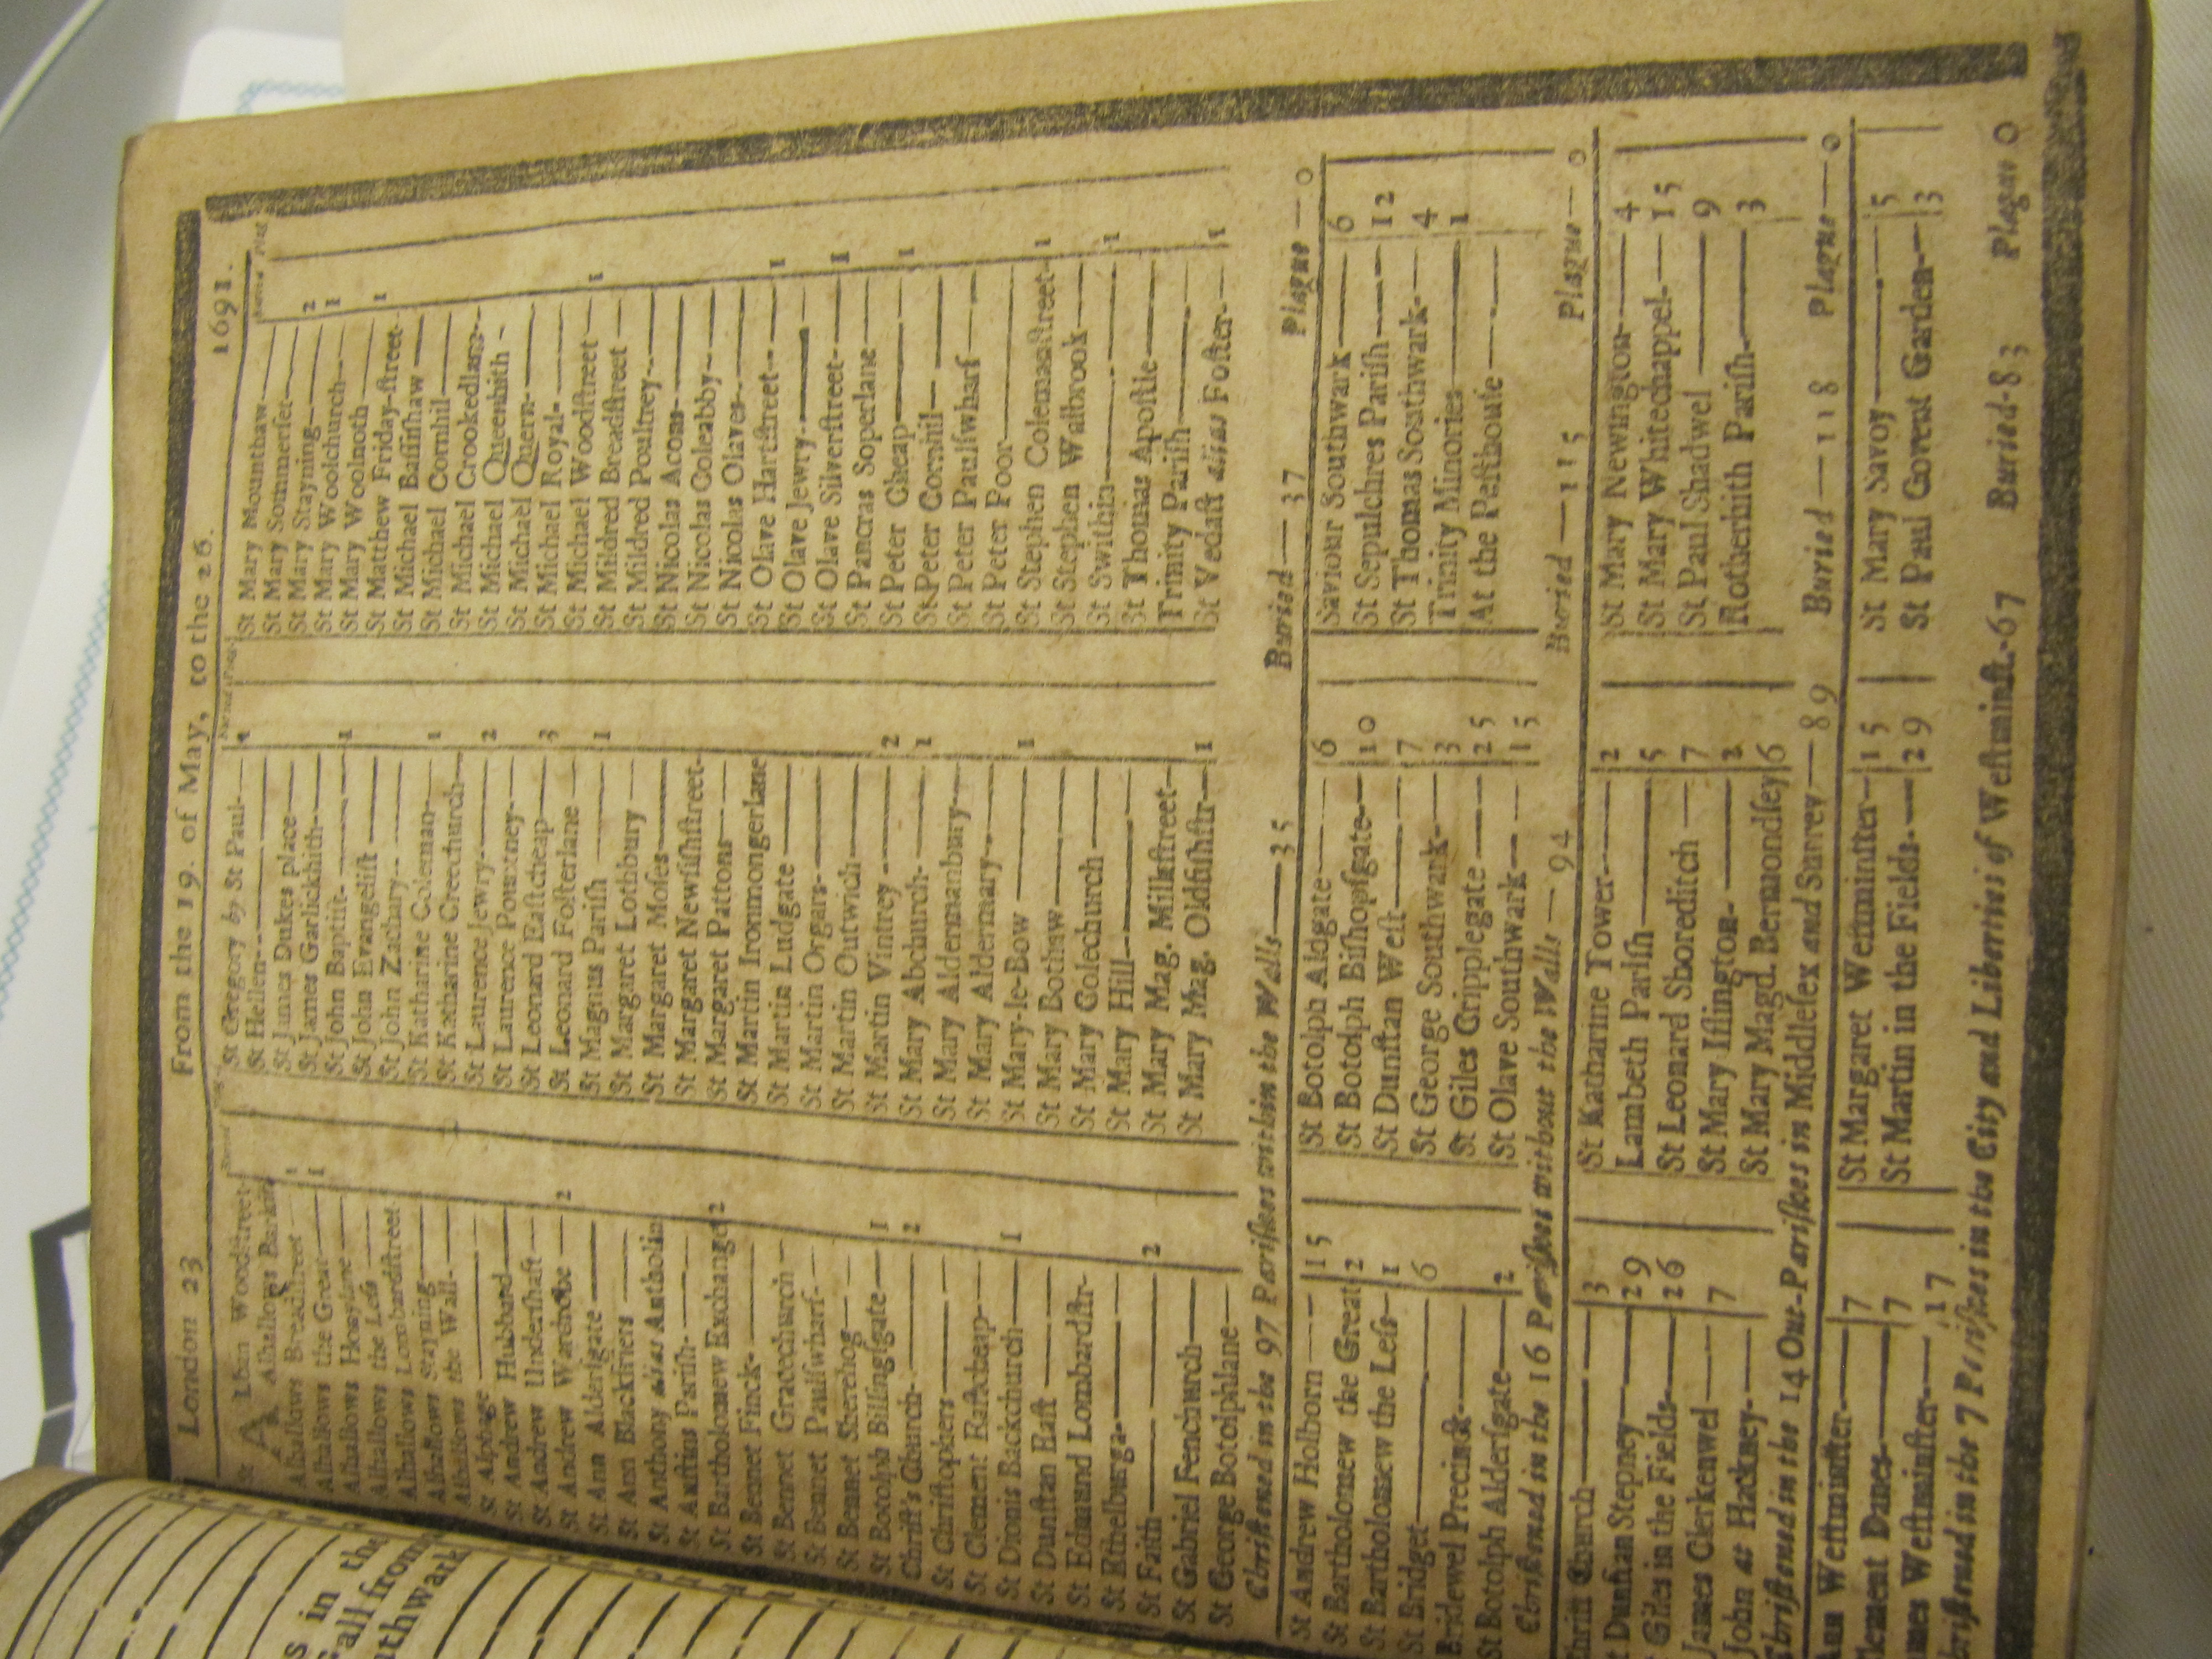 London 23 From the 19. of May, to the 26. 1691.
St ALban Woodstreet
Alhallows Barkin 1
Alhallows Breadstreet
Alhallows the Great 1
Alhallows Honylane
Alhallows the Less
Alhallows Lombardstreet
Alhallows Stayning
Alhallows the Wall
St Alphage
St Andrew Hubbard
St Andrew Undershaft
St Andrew Wardrobe 2
St Ann Aldersgate
St Ann Blackfriers
St Anthony alias Antholin
St Austins Parish
St Bartholomew Exchange 2
St Bennet Finck
St Bennet Gracechurch
St Bennet Paulswharf
St Bennet Sherehog
St Botolph Billingsgate 1
Christ's Church 2
St Christophers
St Clement Eastcheap
St Dionis Backchurch 1
St Dunstan East
St Edmund Lombardstr
St Ethelburga
St Faith 2
St Gabriel Fenchurch
St George Botolphlane
St Gregory by St Paul 4
St Hellen
St James Dukes place
St James Garlickhith
St John Baptist 1
St John Evangelist
St John Zachary
St Katharine Coleman 1
St Katharine Creechurch
St Laurence Jewry 2
St Laurence Pountney
St Leonard Eastcheap 3
St Leonard Fosterlane
St Magnus Parish 1
St Margaret Lothbury
St Margaret Moses
St Margaret Newfishstreet
St Margaret Pattons
St Martin Ironmongerlane
St Martin Ludgate
St Martin Orgars
St Martin Outwich
St Martin Vintrey 2
St Mary Abchurch 1
St Mary Aldermanbury
St Mary Aldermary
St Mary-le-Bow 1
St Mary Bothaw
St Mary Colechurch
St Mary Hill
St Mary Mag. Milkstreet
St Mary Mag. Oldfishstr 1
St Mary Mounthaw
St Mary Sommerset
St Mary Stayning 2
St Mary Woolchurch 1
St Mary Woolnoth
St Matthew Friday-street 1
St Michael Bassishaw
St Michael Cornhill
St Michael Crookedlane
St Michael Queenhith
St Michael Quern
St Michael Royal
St Michael Woodstreet 1
St Mildred Breadstreet
St Mildred Poultney
St Nicolas Acons
St Nicolas Coleabby
St Nicolas Olaves
St Olave Hartstreet 1
St Olave Jewry
St Olave Silverstreet 1
St Pancras Soperlane
St Peter Cheap 1
St Peter Cornhil
St Peter Paulswharf
St Peter Poor
St Stephen Colemanstreet 1
St Stephen Walbrook
St Swithin 1
St Thomas Apostle
Trinity Parish
St Vedast alias Foster 1
Christned in the 97 Parishes within the Walls 35 Buried 37 Plague 0
St Andrew Holborn 15
St Bartholomew the Great 2
St Bartholomew the Less 1
St Bridget 6
Bridewel Precinct
St Botolph Aldersgate 2
St Botolph Aldgate 6
St Botolph Bishopsgate 10
St Dunstan West 7
St George Southwark 3
St Giles Cripplegate 25
St Olave Southwark 15
Saviour Southwark 6
St Sepulchres Parish 12
St Thomas Southwark 4
Trinity Minories 1
At the Pesthouse
Christned in the 16 Parishes without the Walls 94 Buried 115 Plague 0
Christ Church 3
Dunstan Stepney 29
Giles in the Fields 26
James Clerkenwel 7
John at Hackney 7
St Katharine Tower 2
Lambeth Parish 5
St Leonard Shoreditch 7
St Mary Islington 2
St Mary Magd. Bermondsey 6
St Mary Newington 4
St Mary Whitechappel 15
St Paul Shadwel 9
Rotherhith Parish 3
Christned in the 14 Out-Parishes in Middlesex and Surrey 89 Buried 118 Plague 0
Ann Westminster 7
Clement Danes 7
James Westminster 17
St Margaret Westminster 15
St Martin in the Fields 29
St Mary Savoy 5
St Paul Covent Garden 3
Christned in the 7 Parishes in the City and Liberties of Westminst. 67 Buried 83 Plague 0